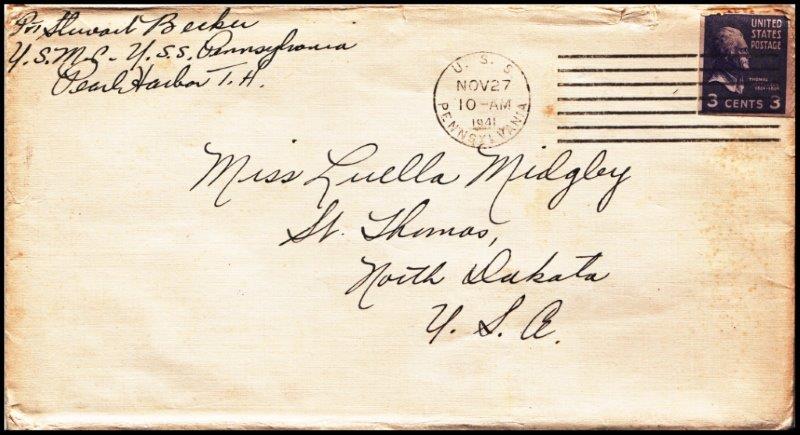 Pvt Stewart Becker
U.S.M.C - U.S.S. Pennsylvania
Pearl Harbor T.H.
U. S. S.
NOV 27
10-AM
1941
PENNSYLVANIA
UNITED
STATES
POSTAGE
THOMAS
3 CENTS 3
Miss Luella Midgley
St. Thomas,
North Dakota
U. S. A.